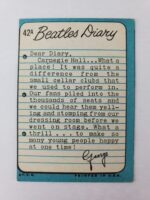 42A Beatles Diary
Dear Diary,
Carnegie Hall...What a
place! It was quite a
difference from the
small cellar clubs that
we used to perform in.
Our fans piled into the
thousands of seats and
we could hear them yell-
ing and stomping from our
dressing room before we
went on stage. What a
thrill ... to make so
many young people happy
at one time!
George
PRINTED IN U.S.A.